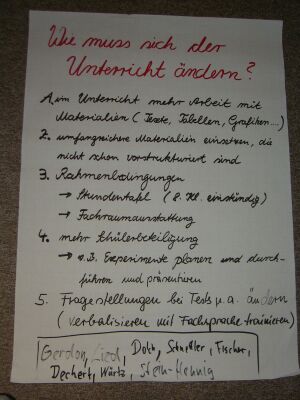 Wie muss sich der
Unterricht ändern?
1. im Unterricht mehr Arbeit mit
Materialien (Texte, Tabellen, Grafiken....)
2. umfangreichere Materialien einsetzen, die
nicht schon vorstrukturiert sind
3. Rahmenbedingungen
→ Stundentafel (8. Kl. einstündig)
→ Fachraumausstattung
4. mehr Schülerbeteiligung
→ z.B. Experimente planen und durch-
führen und präsentieren
5. Fragestellungen bei Tests u.a. ändern
(verbalisieren mit Fachsprache trainieren)
Gerdon, Doth, Fischer,
Dechert, Würtz, Stein-Hennig